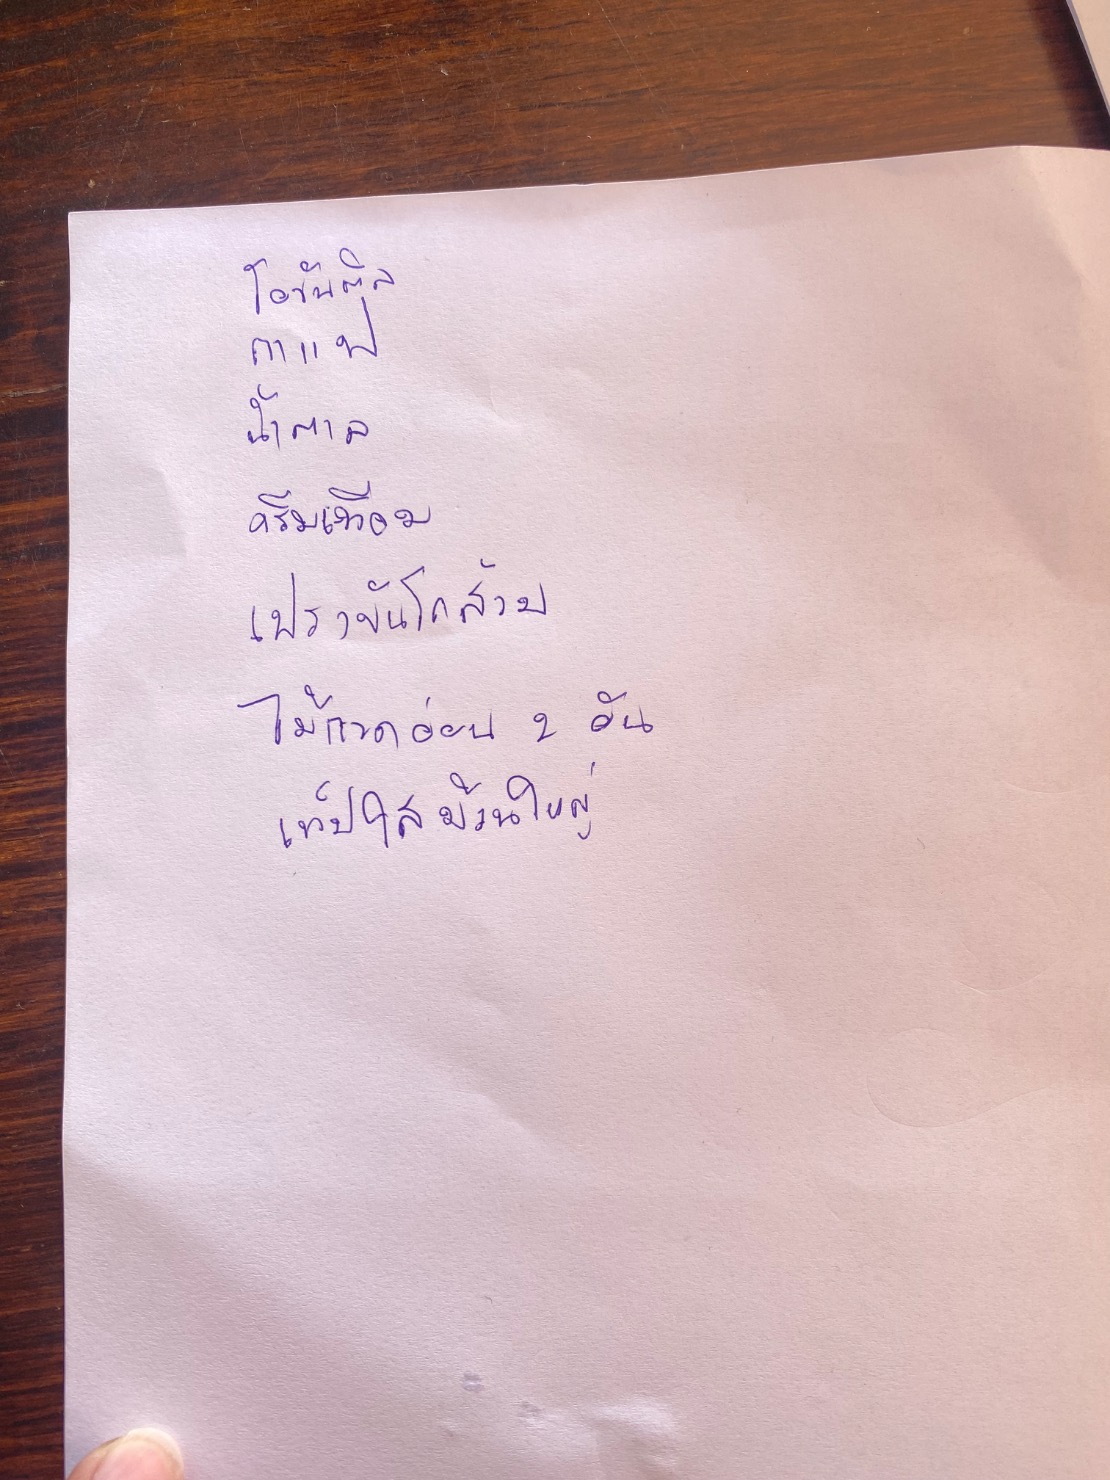 โอวันติล
กาแฟ
น้ำตาล
ครีมเทียม
แปรงขัดโถส้วม
ไม้กวาดอ่อน 2 อัน
เทปใสม้วนใหญ่